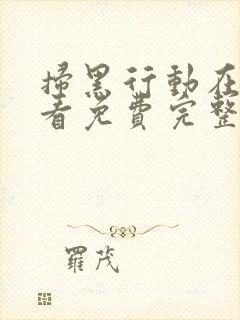 掃黑行動在
看免費完整
羅茂